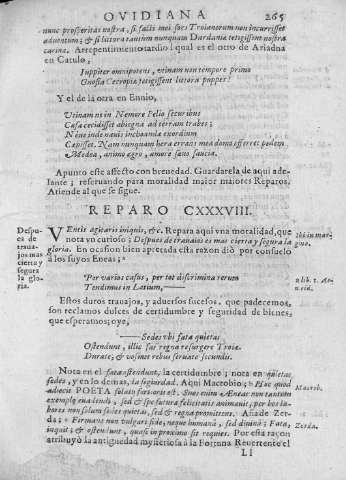 OVIDIANA 265
nunc prosperitas nostra, si fasti mei sors Troianorum non incurrisset
aduentum; & si littora tantum nunquam Dardania tetigissent nostra
carina. Arrepentimiento tardio igual es el otro de Ariadna
en Catulo,
Iuppiter omnipotens, vtinam non tempore primo
Gnosia Cecropiæ tetigissent littora puppes!
Y el de la otra en Ennio,
Vtinam ne in Nemore Pelio securibus
Casa cecidisset abiegna ad terram trabes;
Neue inde nauis inchoandæ exordium
Cæpisset. Nam nunquam hera errans mea domo efferet pedem
Medea, animo ægro, amore sæuo saucia.
Apunto este affecto con breuedad. Guardarela de aqui ade-
lante; reseruando para moralidad maior maiores Reparos.
Atiende al que se sigue.
REPARO CXXXVIII.
Despu-
es de
traua-
jos mas
cierta y
segura
la glo-
ria.
VEntis agitatis iniquis, &c. Repara aqui vna moralidad, que
nota vn curioso; Despues de trauaios es mas cierta y segura la
gloria. En ocasion bien apretada esta razon diò por consuelo
à los suyos Eneas;
Ibi in mar-
gine.
Per varios casus, per tot discrimina rerum
Tendimus in Latium,
Estos duros trauajos, y aduersos sucesos, que padecemos,
son reclamos dulces de certidumbre y seguridad de bienes,
que esperamos; oye,
Sedes vbi fata quietas
Ostendunt, illic fas regna resurgere Troiæ.
Durate, & vosmet rebus seruate secundis.
Nota en el fata ostendunt, la certidumbre; nota en quietas
sedes, y en lo demas, la segurdad. Aqui Macrobio; Hoc quod
adiecit POETA solum
Macrob.
exemplo euadendi, sed & spe futuræ felicitatis animauit, per hos la-
bores non solum sedes quietas, sed & regna promittens. Añade Zer-
da; Firmans non vulgari side, neque humana, sed diuina; Fata,
inquit; & ostendunt, quasi in proximo sit requies. Por esta razon
Zerda.
atribuyò la antiguedad mysteriosa à la Fortuna Reuertente el
Ll